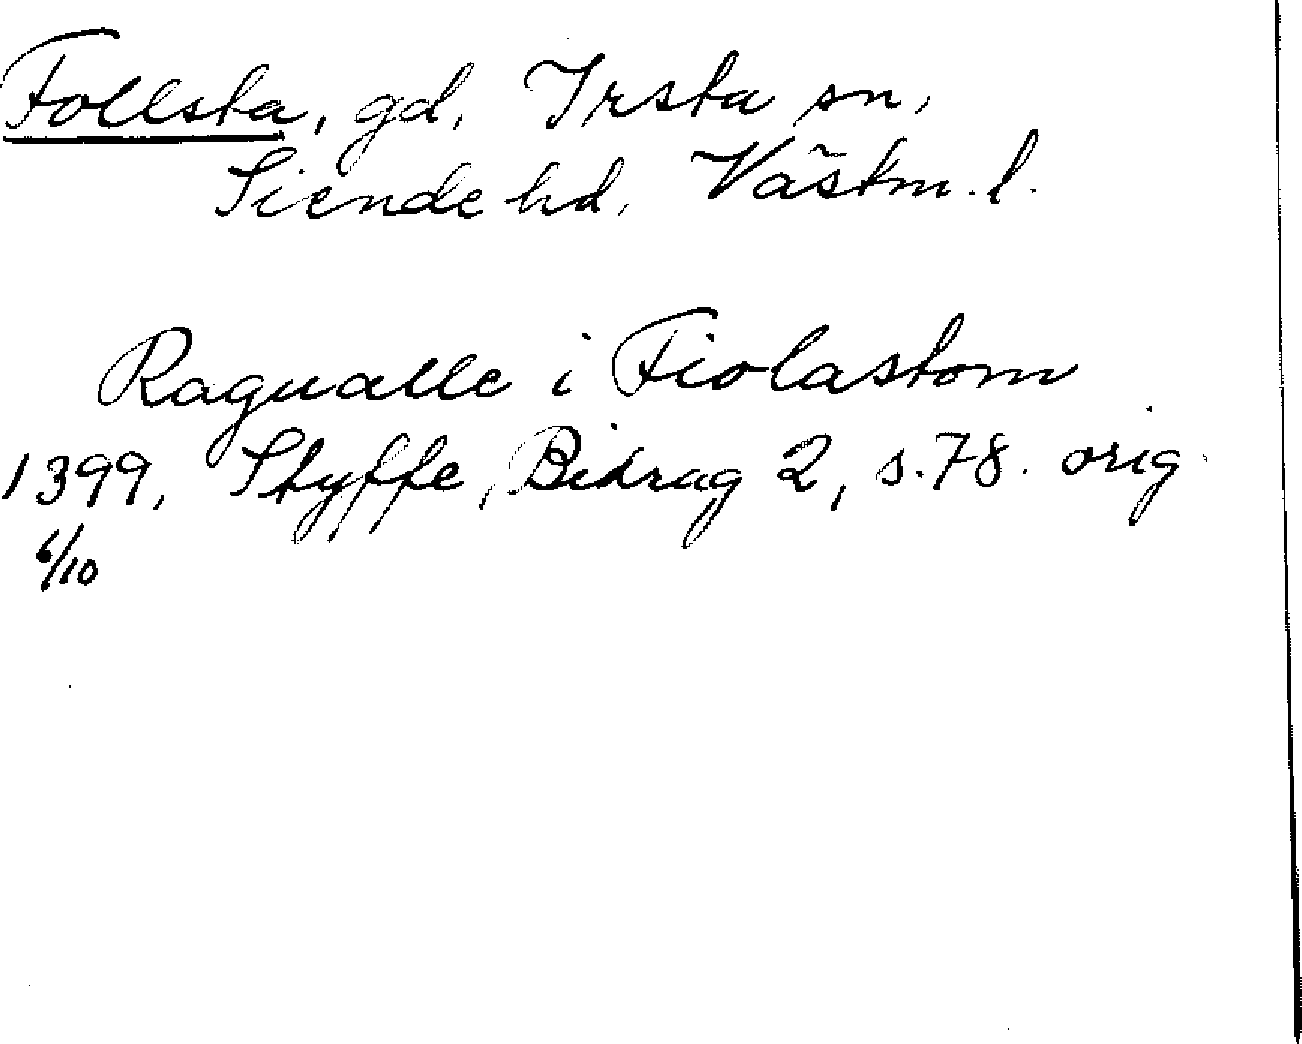 Follsta, gd, Irsta sn,
Siende hd, Västm. l.
Ragualle i Fiolastom
1399, Styffe, Bidrag 2, s. 78. orig.
6/10